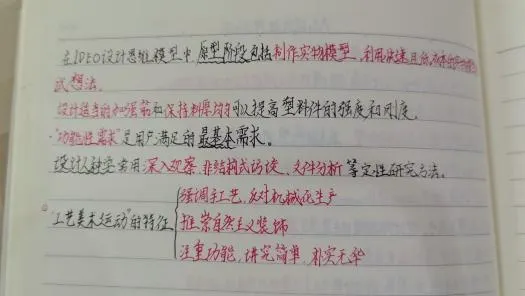 在IDEO设计思维模型中,原型阶段包括制作实物模型,利用快速且低成本的
试想法.
设计适当的加强筋和保持料厚均匀可以提高塑料件的强度和刚度.
·"功能性需求"是用户满足的最基本需求。
设计人种学常用深入观察、非结构式访谈、文件分析等定性研究方法。
强调手工艺,反对机械化生产
"工艺美术运动"的特征 推崇自然主义装饰
注重功能、讲究简单、朴实无华